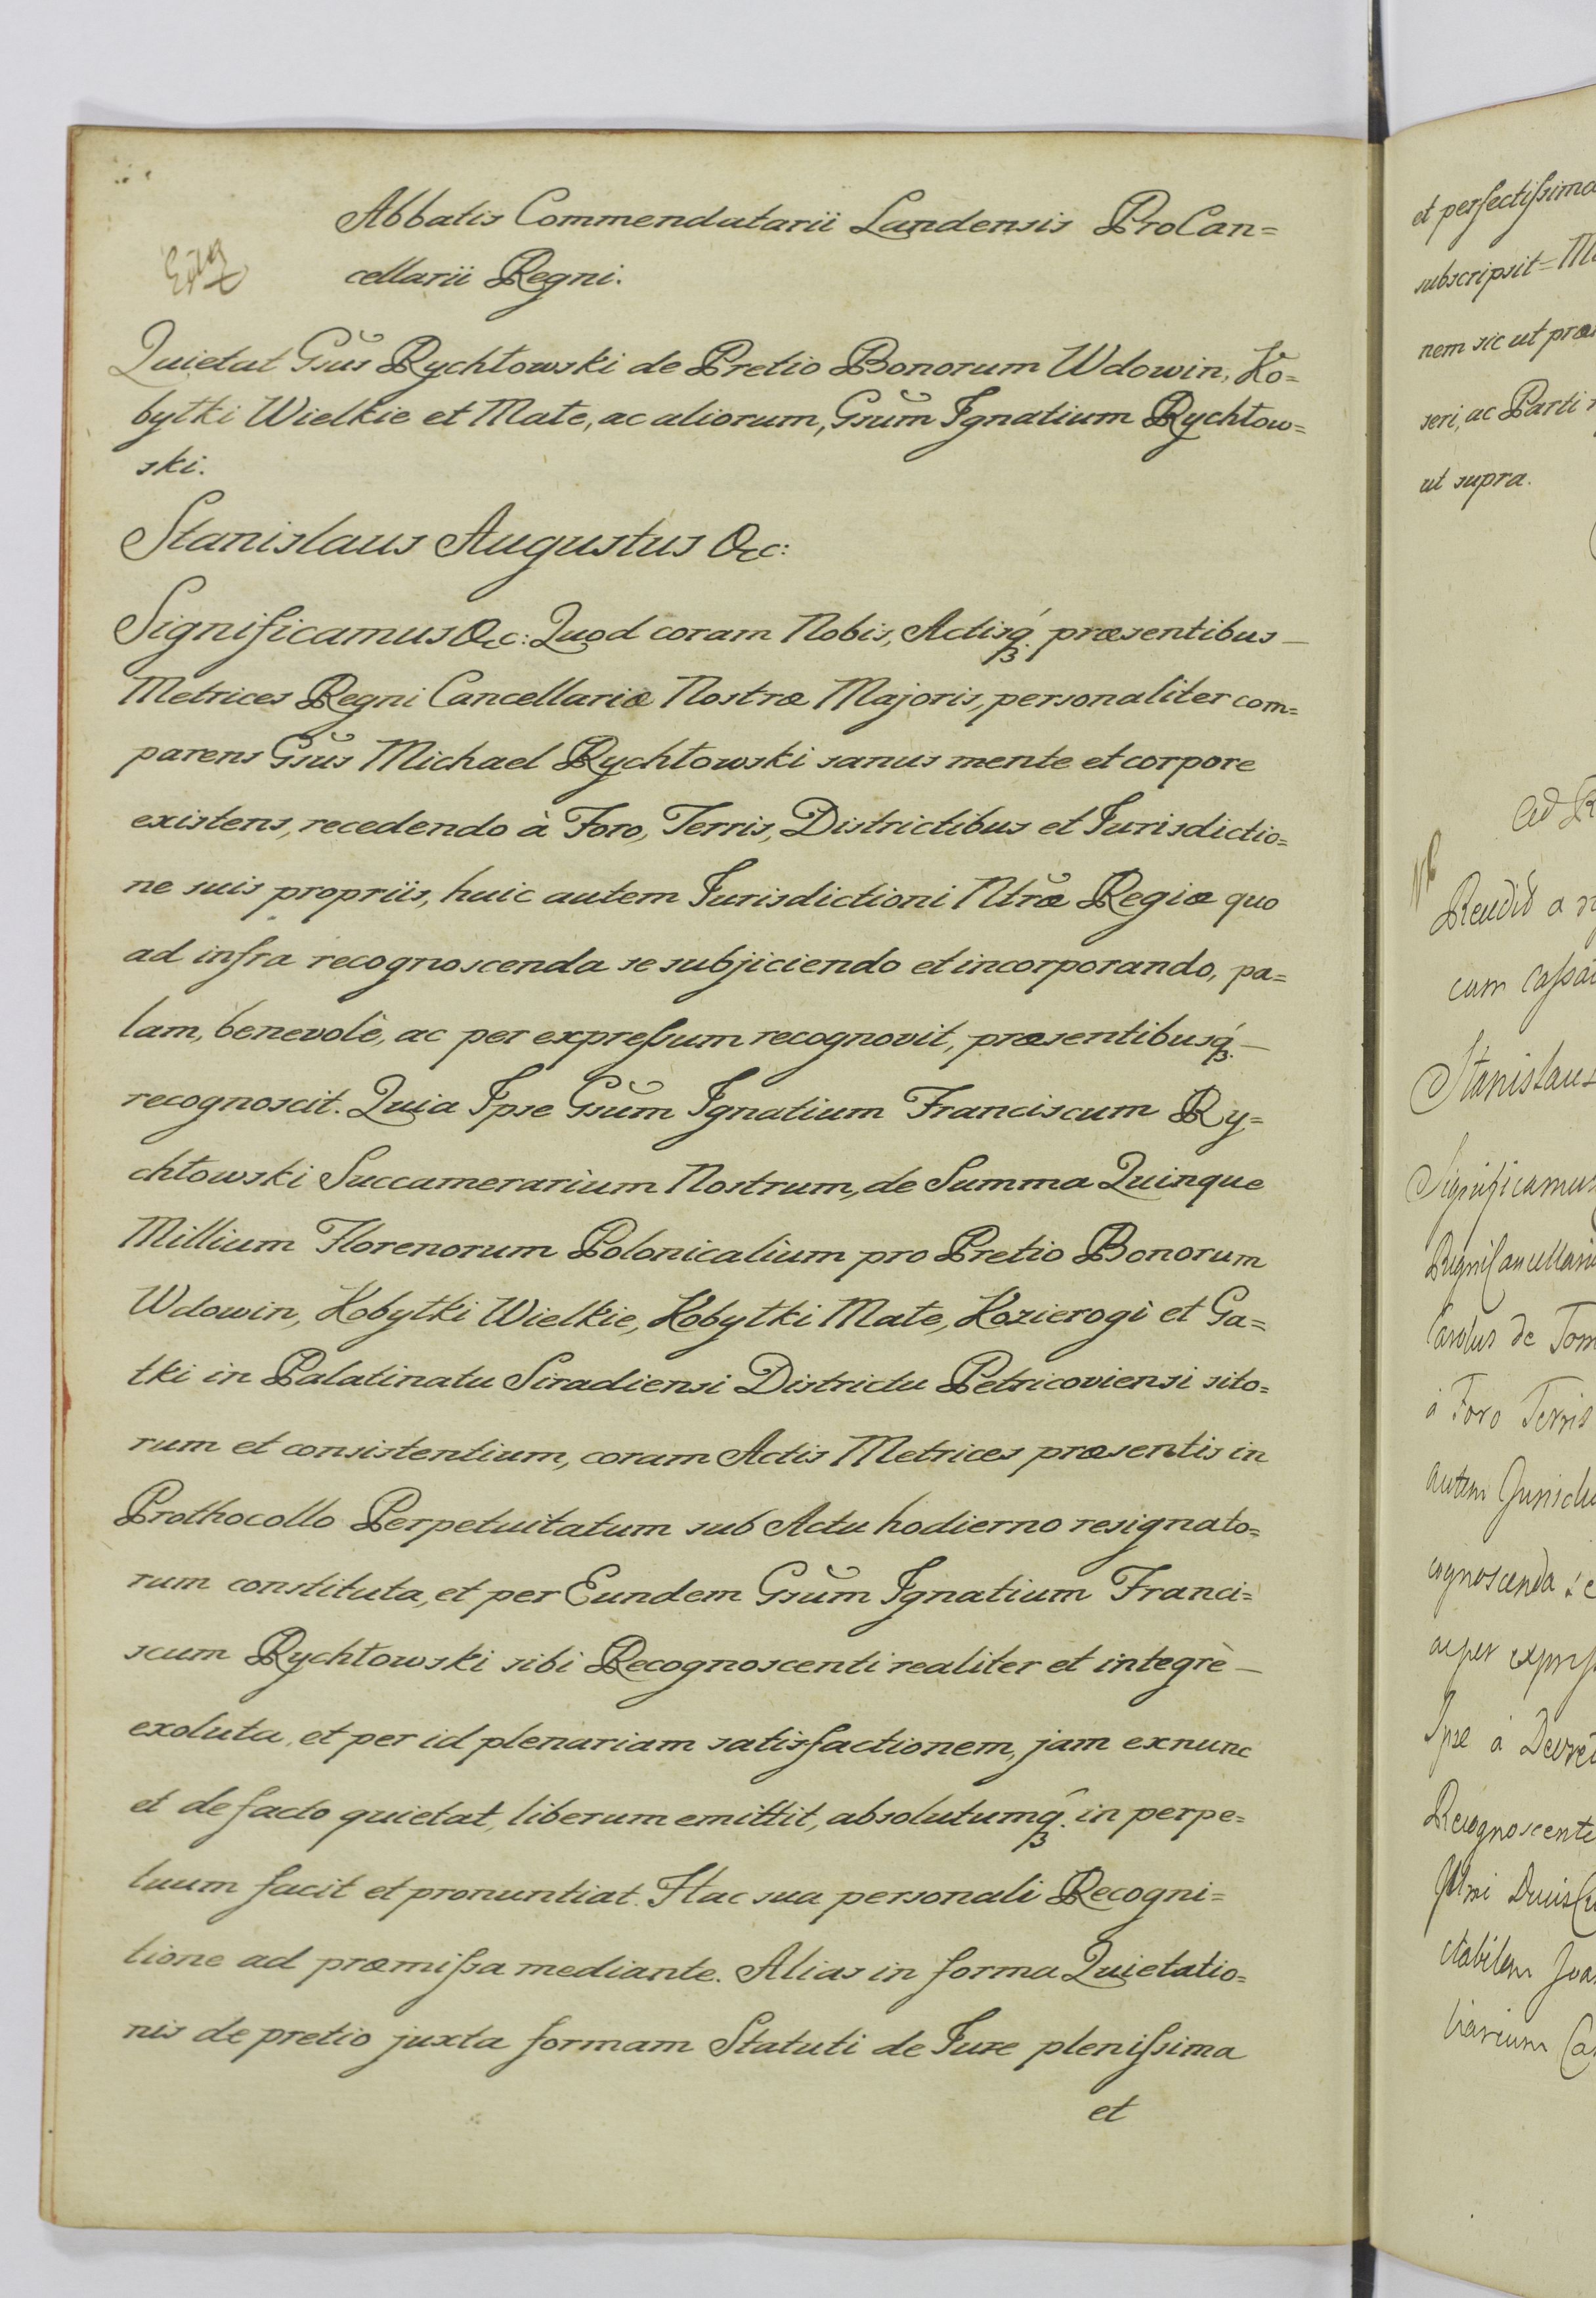 Abbatis Commendatarii Landensis ProCan=
cellarii Regni.
Quietat Gsus Rychłowski de Pretio Bonorum Wdowin, Ko=
byłki Wielkie et Małe, ac aliorum, Gsum Ignatium Rychłow=
ski.
Stanislaus Augustus &c:
Significamus &c: Quod coram Nobis, Actisq́ꝫ. præsentibus —
Metrices Regni Cancellariæ Nostræ Majoris, personaliter com=
parens Gsus Michael Rychłowski sanus mente et corpore
existens, recedendo à Foro, Terris, Districtibus et Jurisdictio=
ne suis propriis, huic autem Jurisdictioni Ntræ Regiæ quo
ad infra recognoscenda se subjiciendo et incorporando, pa=
lam, benevolè, ac per expreſsum recognovit, præsentibusq́ꝫ. —
recognoscit. Quia Ipse Gsum Ignatium Franciscum Ry=
chłowski Succamerarium Nostrum, de Summa Quinque
Millium Florenorum Polonicalium pro Pretio Bonorum
Wdowin, Kobyłki Wielkie, Kobyłki Małe, Kozierogi et Ga=
łki in Palatinatu Siradiensi Districtu Petricoviensi sito=
rum et consistentium, coram Actis Metrices præsentis in
Prothocollo Perpetuitatum sub Actu hodierno resignato=
rum constituta, et per Eundem Gsum Ignatium Franci=
scum Rychłowski sibi Recognoscenti realiter et integrè —
exoluta, et per id plenariam satisfactionem, jam exnunc
et de facto quietat, liberum emittit, absolutumq́ꝫ. in perpe=
tuum facit et pronuntiat. Hac sua personali Recogni=
tione ad præmiſsa mediante. Alias in forma Quietatio=
nis de pretio juxta formam Statuti de Jure pleniſsima
et
et perfectiſsima
subscripsit =
nem sic ut
seri, ac Parti
ut supra.
Ad
cum
Stanislaus
Significamus
Carolus de
à Foro Terris
autem
cognoscenda
ac per
Ipse à
Recognoscent